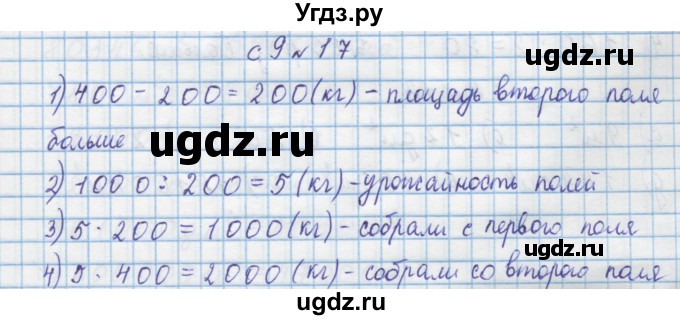 Угдз.ру
с 9 № 17.
1) 400 - 200 = 200 (кг) - площадь второго поля
больше
ugdz.ru
2) 1000 : 200 = 5 (кг) - урожайность полей
3) 5 · 200 = 1000 (кг) - собрали с первого поля
ugdz.ru
4) 5 · 400 = 2000 (кг) - собрали со второго поля
ugdz.ru